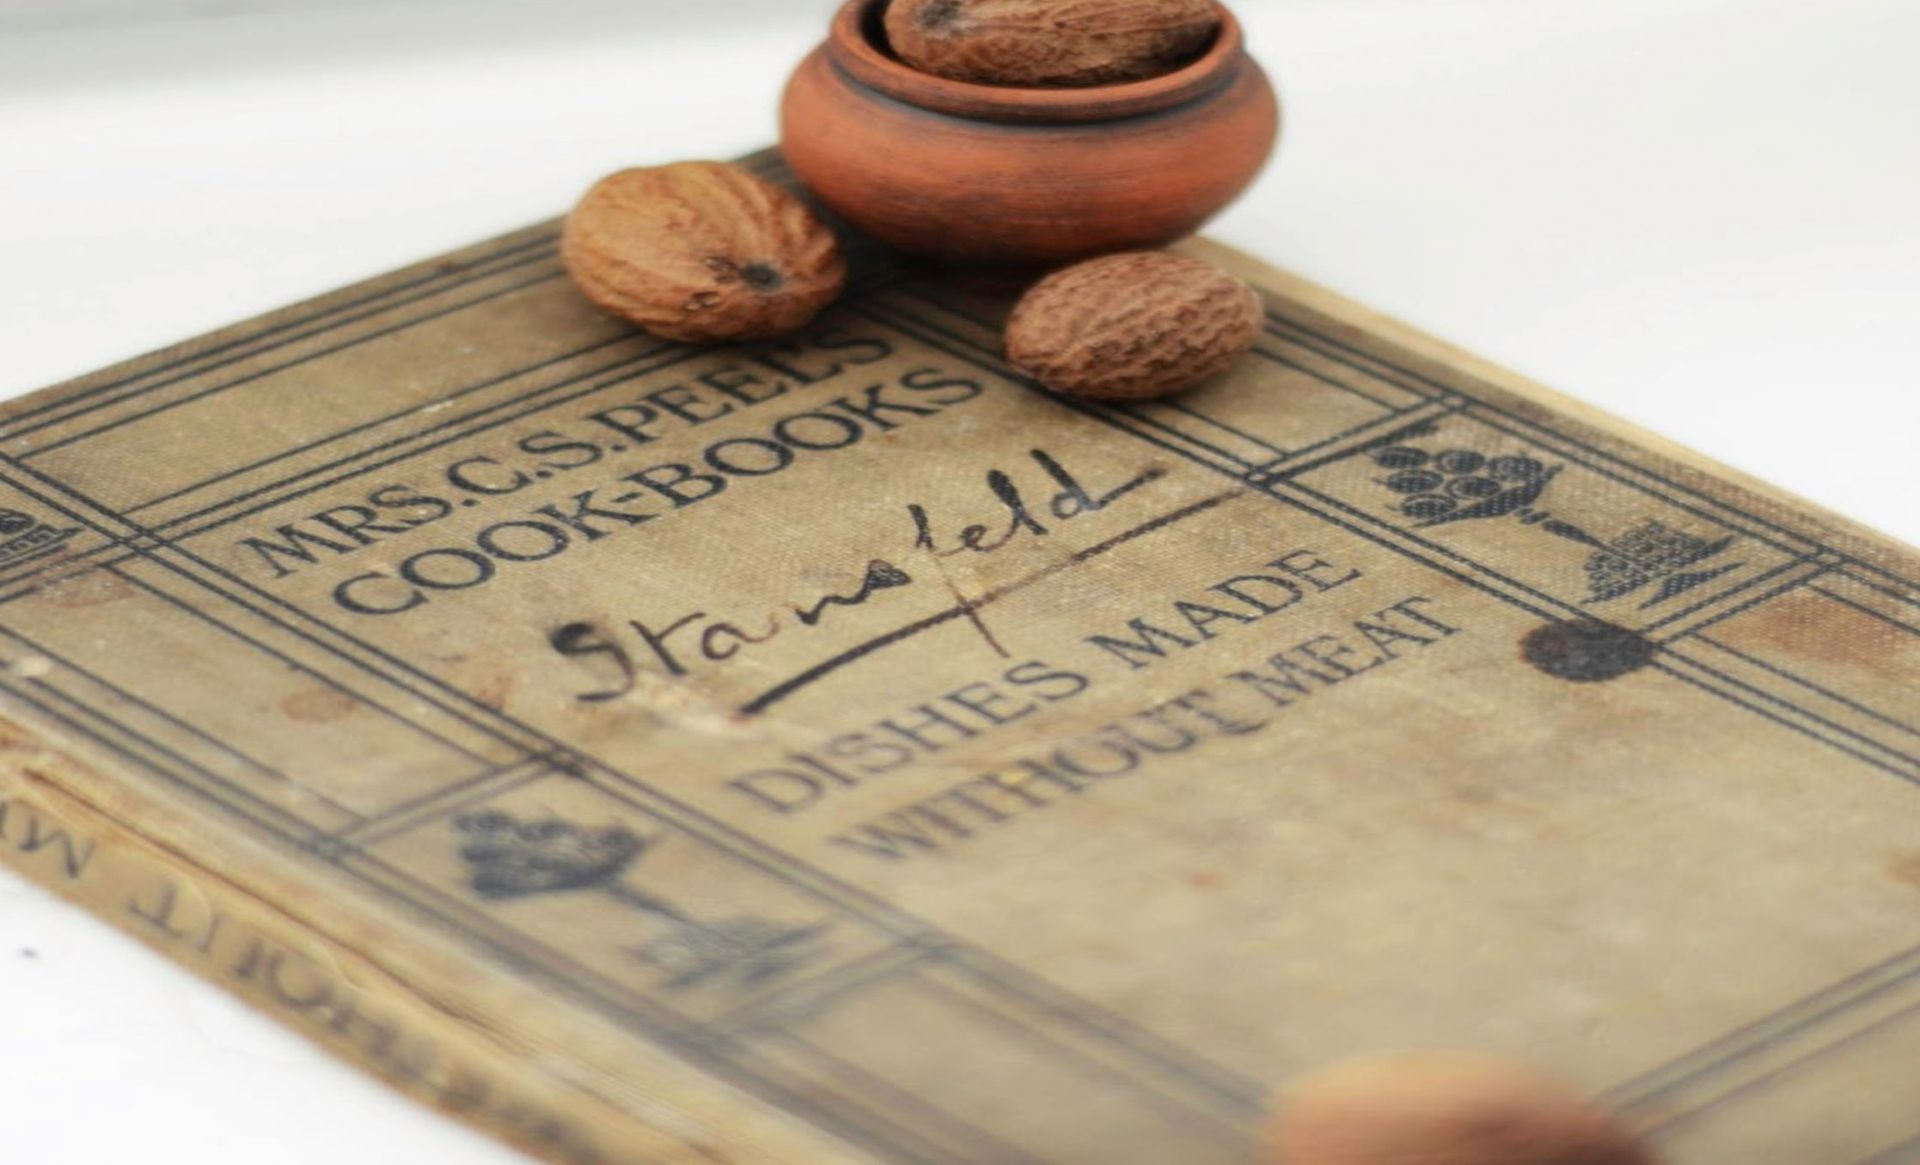 MRS.C.S.PEEL'S
COOK-BOOKS
Stansfeld
DISHES MADE
WITHOUT MEAT